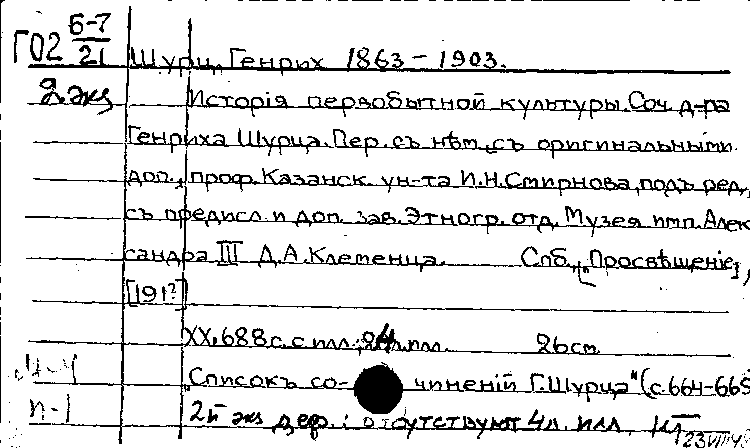 ГО2 6-7/21 Шурц, Генрих 1863 - 1903.
2 экз Исторія первобытной культуры. Соч. д-ра
Генриха Шурца. Пер. съ нѣм., съ оригинальными
доп., проф. Казанск. ун-та И.Н.Смирнова, подъ ред.,
съ предисл. и доп. зав. Этногр. отд. Музея имп. Алек
сандра III Д.А.Клеменца. Спб., "Просвѣщеніе",
[191?]
XX, 688 с. с илл.; 24 л. илл. 26 см
"Списокъ со- чиненій Г.Шурца" (с. 664-665
п-1 2й экз деф.: отсутствуют 4 л. илл.